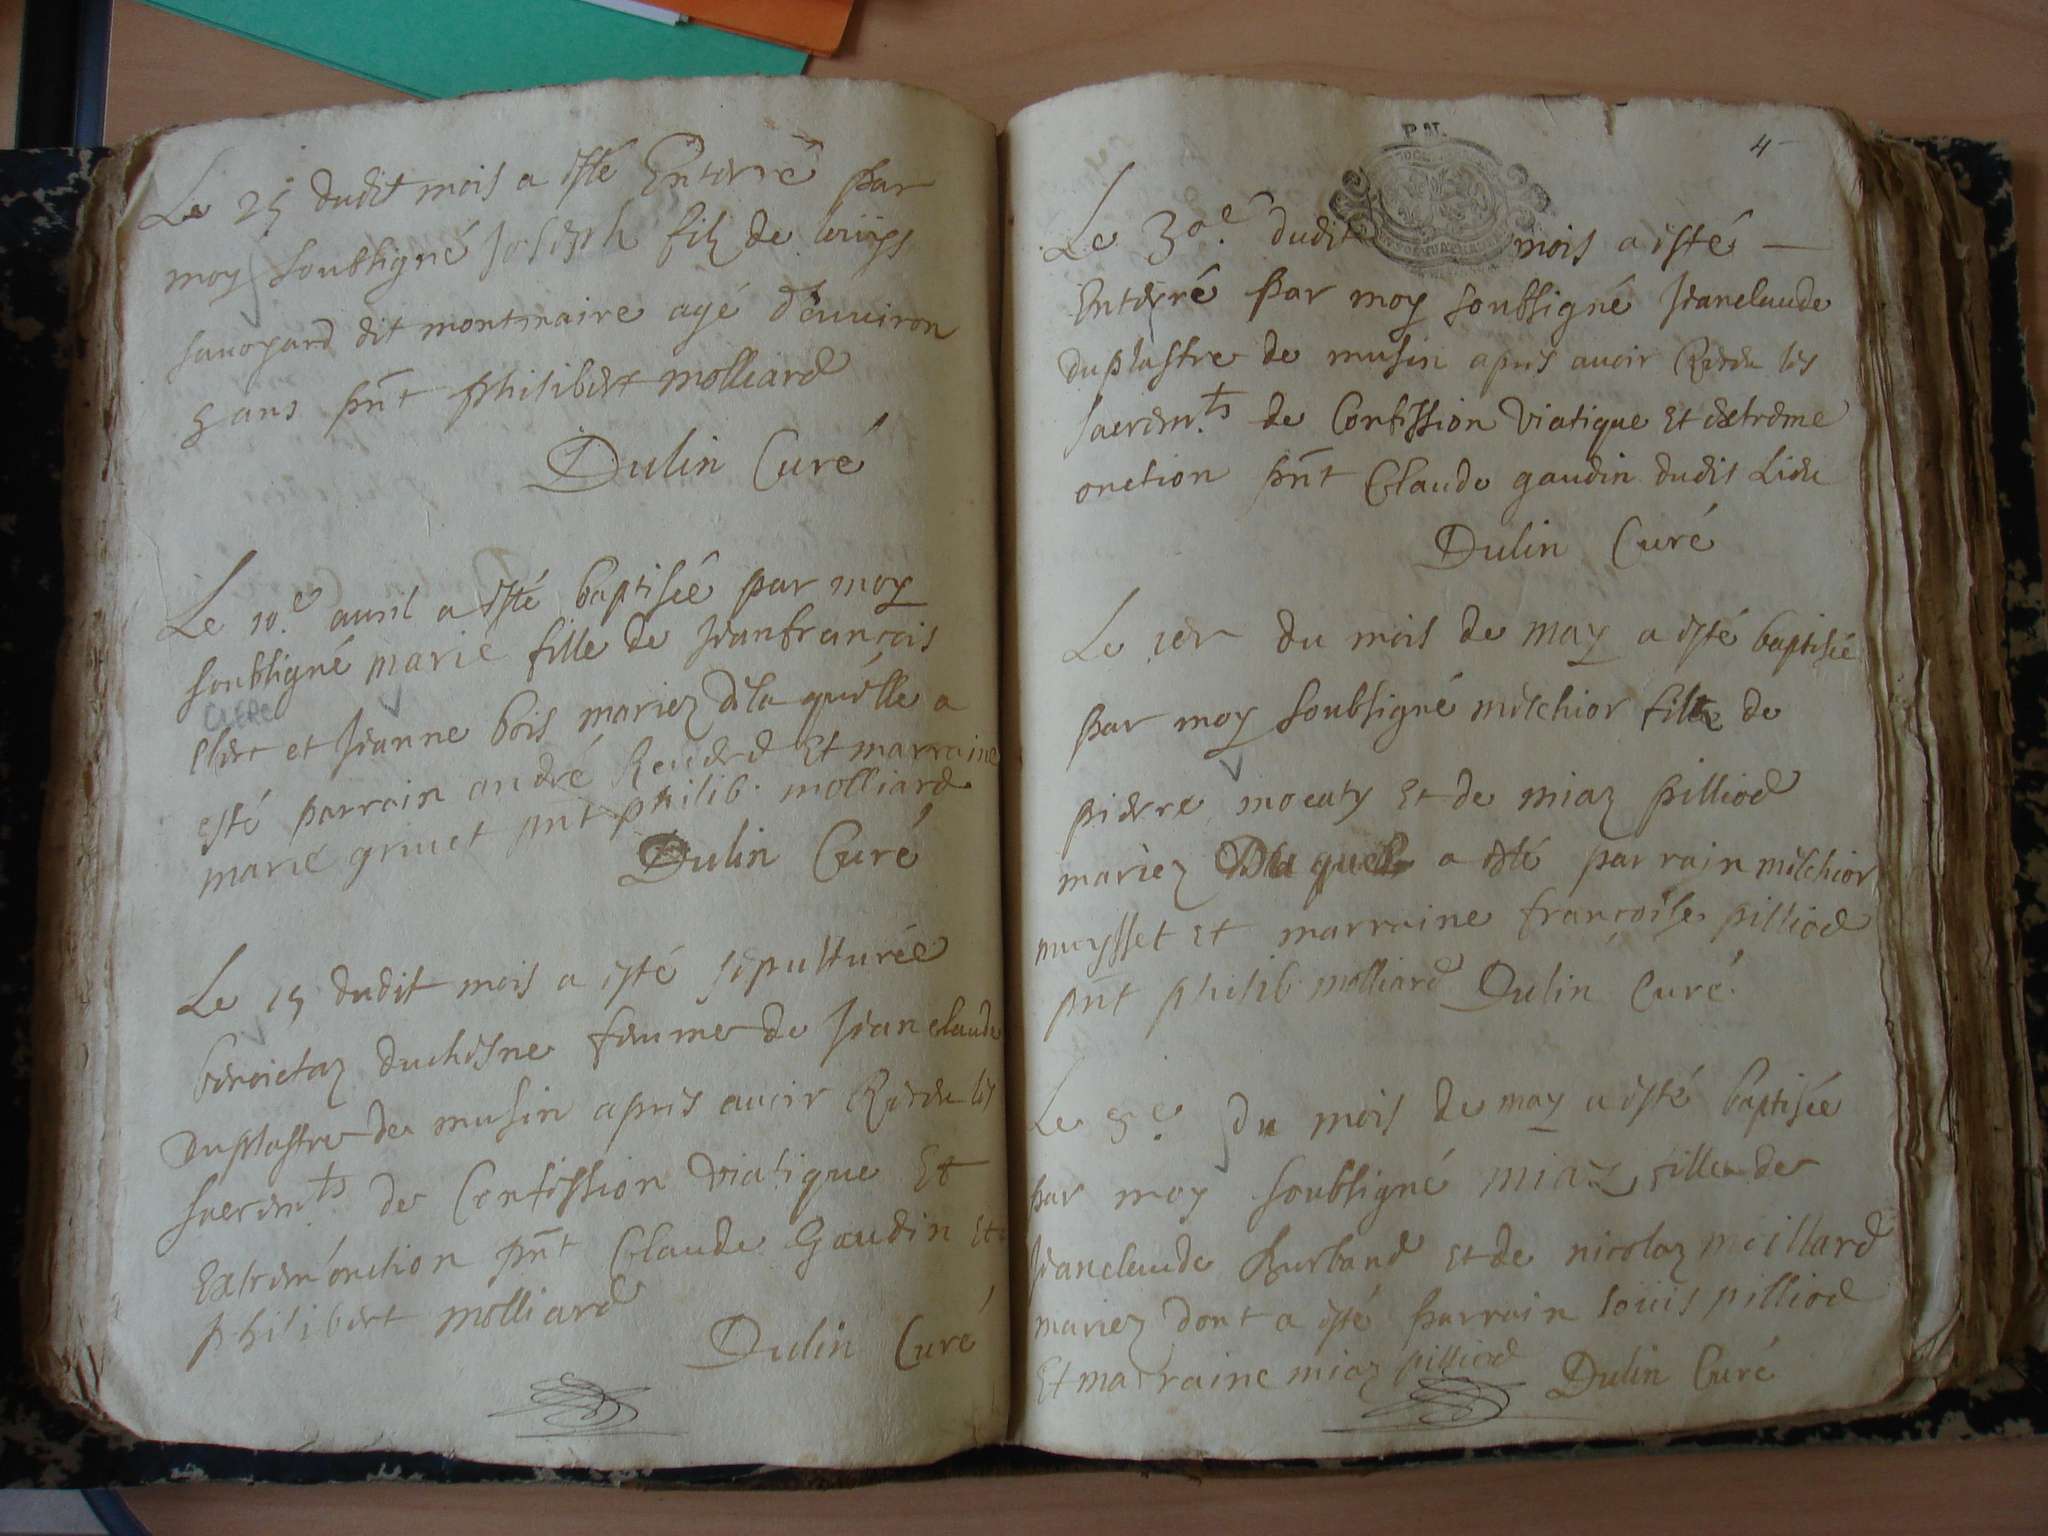 Le 25 dudit mois a esté Enterré par
moy soubsigné Joseph filz de louys
savoyard dit montmaire agé d'enuiron
5 ans pnt philibert molliard
Dulin Curé
Le 10.e auril a esté baptisée par moy
soubsigné marie fille de Jeanfrançois
CLERC
Clerc et Jeanne bois mariez de la quelle a
esté parrain andré Reuerd Et marraine
marie griuet pnt philib. molliard
Dulin Curé
Le 15 dudit mois a esté sepulturée
benoictaz duchesne femme de Jeanclaude
Duplastre de musin apres auoir Receu les
sacrem.ts de Confession viatique Et
Extrem'onction pnt Claude Gaudin Et
philibert molliard
Dulin Curé
P.N.
4
Le 30.e dudit mois a esté
Enterré par moy soubsigné Jeanclaude
duplastre de musin apres auoir Receu les
sacrem.ts de Confession viatique Et extreme
onction pnt Claude gaudin dudit Lieu
Dulin Curé
Le 1er du mois de may a esté baptisée
par moy soubsigné melchior filz de
pierre moccuty Et de miaz pilliod
mariez Duquel a esté parrain melchior
muysset Et marraine françoise pilliod
pnt philib. molliard Dulin Curé.
Le 5.e du mois de may a esté baptisée
par moy soubsigné miaz fille de
Jeanclaude burband Et de nicolaz meillard
mariez dont a esté parrain louis pilliod
Et marraine miaz pilliod
Dulin Curé